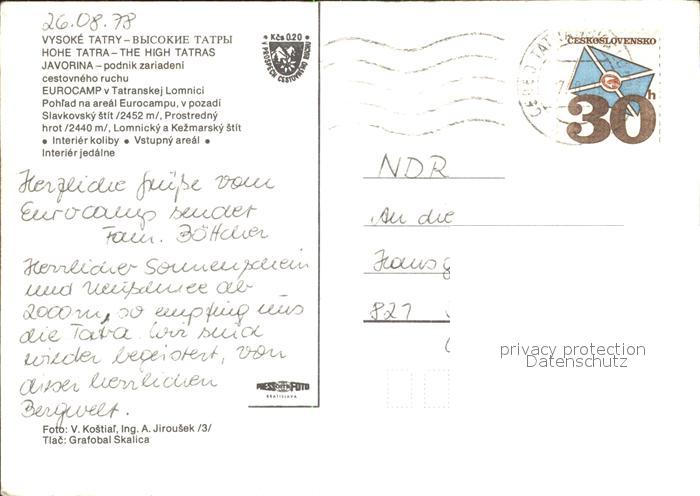 26.08.78
VYSOKÉ TATRY – ВЫСОКИЕ ТАТРЫ
HOHE TATRA – THE HIGH TATRAS
JAVORINA – podnik zariadení
cestovného ruchu
EUROCAMP v Tatranskej Lomnici
Pohľad na areál Eurocampu, v pozadí
Slavkovský štít /2452 m/, Prostredný
hrot /2440 m/, Lomnický a Kežmarský štít
• Interiér koliby • Vstupný areál •
Interiér jedálne
Kčs 0.20
V PROSPECH CESTOVNÉHO RUCHU
ČESKOSLOVENSKO
30h
Herzliche Grüße vom
Eurocamp sendet
Fam. Böttcher
Herrlicher Sonnenschein
und Neuschnee ab
2000 m, so empfing uns
die Tatra. Wir sind
wieder begeistert, von
dieser herrlichen
Bergwelt.
NDR
An die
Hausg
821
privacy protection
Datenschutz
PRESSFOTO
BRATISLAVA
Foto: V. Koštiaľ, Ing. A. Jiroušek /3/
Tlač: Grafobal Skalica